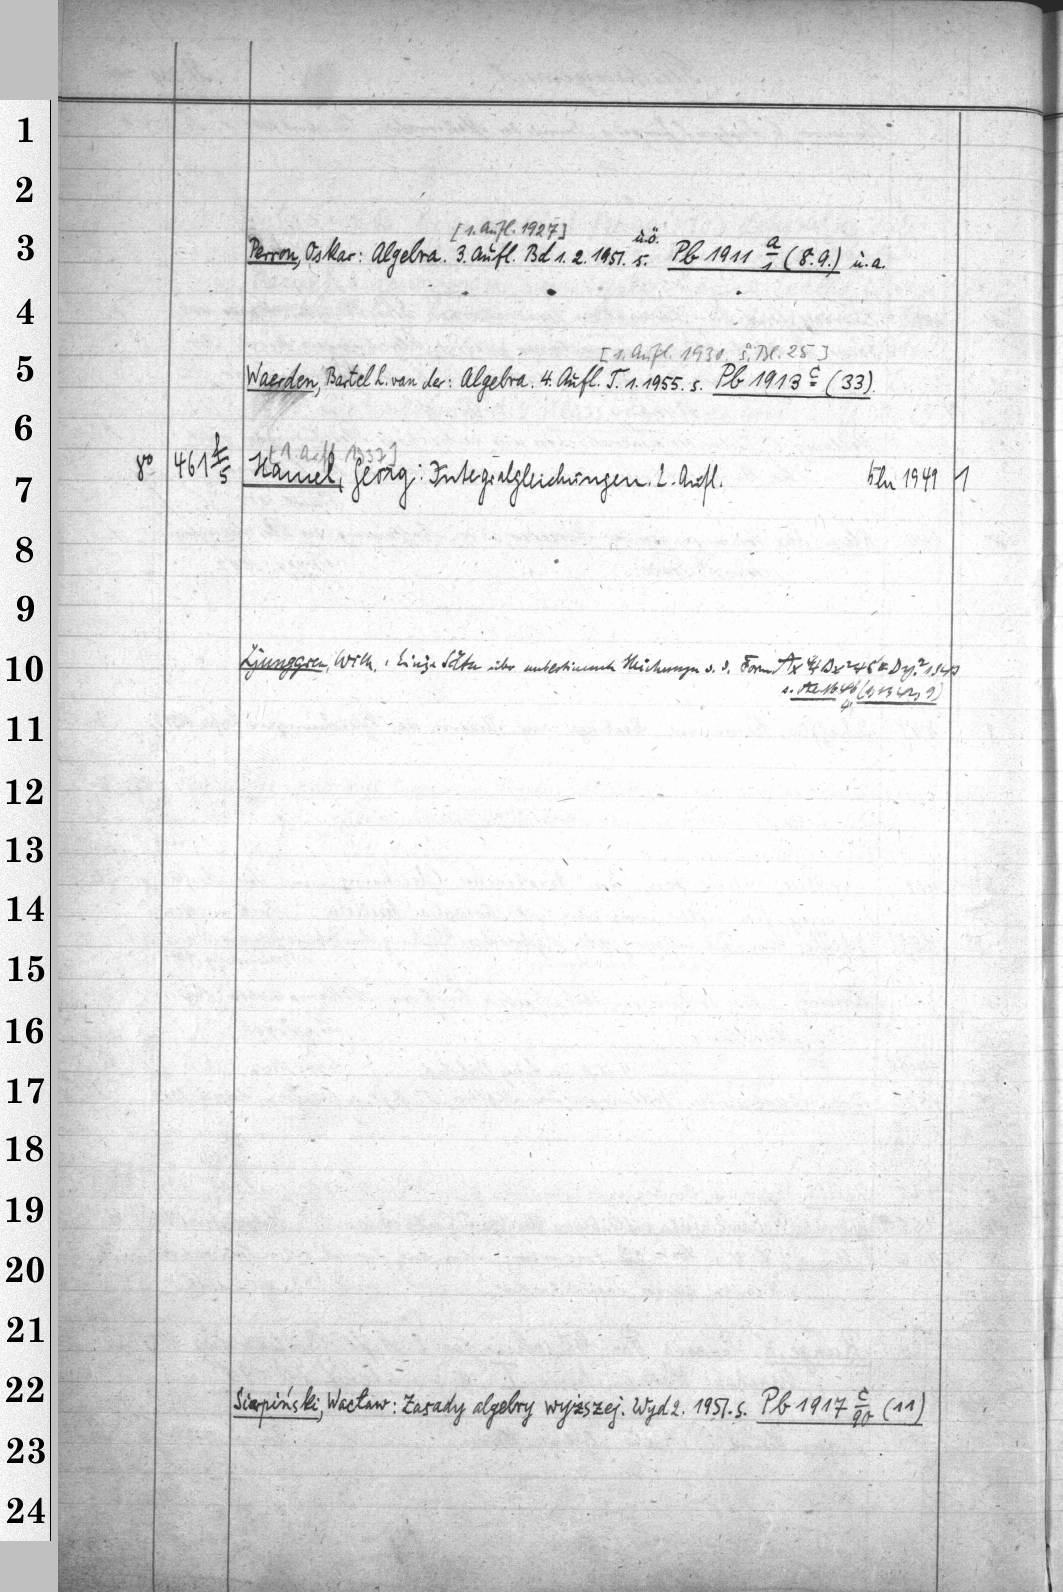 1
2
[1. Aufl. 1927]
3 Perron, Oskar: Algebra. 3. Aufl. Bd 1. 2. 1951. s. u.ö. Pb 1911 a/1 (8.9.) u.a.
4
[1. Aufl. 1930. s. Bl. 25]
5 Waerden, Bartel L. van der: Algebra. 4. Aufl. T. 1. 1955. s. Pb 1913 c (33).
6
[1. Aufl. 1937]
7 8° 461 /5 Hamel, Georg: Integralgleichungen. 2. Aufl. Bln 1949 1
8
9
10 Ljunggren, Wilh.: Einige Sätze über unbestimmte Gleichungen v. d. Form
s. (1942, 9)
11
12
13
14
15
16
17
18
19
20
21
22 Sierpiński, Wacław: Zasady algebry wyższej. Wyd 2. 1951. s. Pb 1917 c/90 (11)
23
24